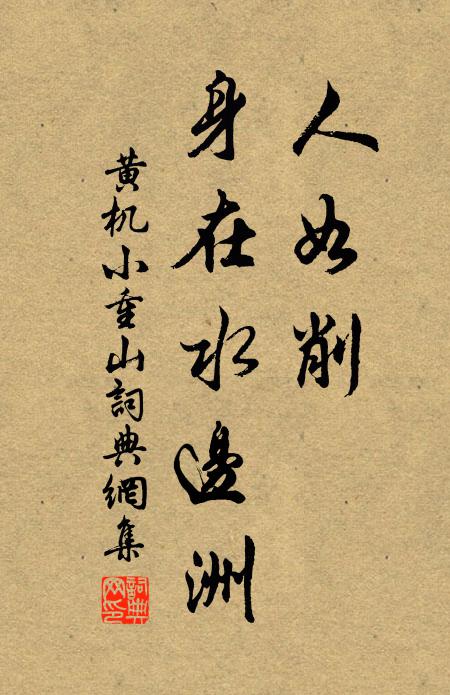 人如削
身在水邊洲
黄机小重山詞典網集
詞典網印